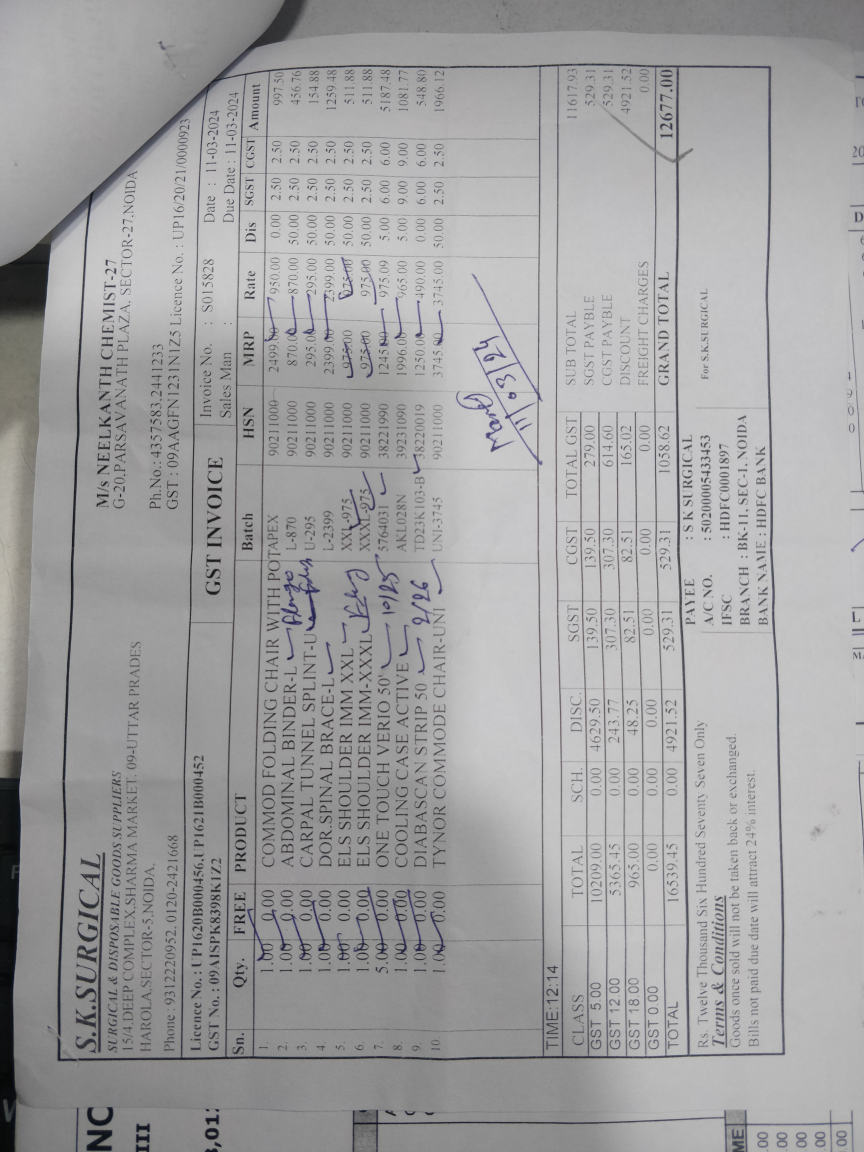 S.K.SURGICAL
SURGICAL & DISPOSABLE GOODS SUPPLIERS
15/4,DEEP COMPLEX,SHARMA MARKET, 09-UTTAR PRADES
HAROLA,SECTOR-5,NOIDA,
Phone : 9312220952, 0120-2421668
M/s NEELKANTH CHEMIST-27
G-20,PARSAVANATH PLAZA, SECTOR-27,NOIDA
Ph.No.: 4357583,2441233
GST : 09AAGFN1231N1Z5 Licence No. : UP16/20/21/0000923
Licence No. : UP1620B000456,UP1621B000452
GST No. : 09AISPK8398K1Z2
GST INVOICE
Invoice No. : S015828 Date : 11-03-2024
Sales Man : Due Date : 11-03-2024
Sn. Qty. FREE PRODUCT Batch HSN MRP Rate Dis SGST CGST Amount
1. 1.00 0.00 COMMOD FOLDING CHAIR WITH POTAPEX 90211000 2499.00 950.00 0.00 2.50 2.50 997.50
2. 1.00 0.00 ABDOMINAL BINDER-L L-870 90211000 870.00 870.00 50.00 2.50 2.50 456.76
3. 1.00 0.00 CARPAL TUNNEL SPLINT-U U-295 90211000 295.00 295.00 50.00 2.50 2.50 154.88
4. 1.00 0.00 DOR.SPINAL BRACE-L L-2399 90211000 2399.00 2399.00 50.00 2.50 2.50 1259.48
5. 1.00 0.00 ELS SHOULDER IMM XXL XXL-975 90211000 975.00 975.00 50.00 2.50 2.50 511.88
6. 1.00 0.00 ELS SHOULDER IMM-XXXL XXXL-975 90211000 975.00 975.00 50.00 2.50 2.50 511.88
7. 5.00 0.00 ONE TOUCH VERIO 50' 10/25 5764031 38221990 1245.00 975.09 5.00 6.00 6.00 5187.48
8. 1.00 0.00 COOLING CASE ACTIVE AKL028N 39231090 1996.00 965.00 5.00 9.00 9.00 1081.77
9. 1.00 0.00 DIABASCAN STRIP 50 2/26 TD23K103-B 38220019 1250.00 490.00 0.00 6.00 6.00 548.80
10. 1.00 0.00 TYNOR COMMODE CHAIR-UNI UNI-3745 90211000 3745.00 3745.00 50.00 2.50 2.50 1966.12
11/03/24
TIME:12:14
CLASS TOTAL SCH. DISC. SGST CGST TOTAL GST
GST 5.00 10209.00 0.00 4629.50 139.50 139.50 279.00
GST 12.00 5365.45 0.00 243.77 307.30 307.30 614.60
GST 18.00 965.00 0.00 48.25 82.51 82.51 165.02
GST 0.00 0.00 0.00 0.00 0.00 0.00 0.00
TOTAL 16539.45 0.00 4921.52 529.31 529.31 1058.62
SUB TOTAL 11617.93
SGST PAYBLE 529.31
CGST PAYBLE 529.31
DISCOUNT 4921.52
FREIGHT CHARGES 0.00
GRAND TOTAL 12677.00
Rs. Twelve Thousand Six Hundred Seventy Seven Only
Terms & Conditions
Goods once sold will not be taken back or exchanged.
Bills not paid due date will attract 24% interest.
PAYEE : S K SURGICAL
A/C NO. : 50200005433453
IFSC : HDFC0001897
BRANCH : BK-11, SEC-1, NOIDA
BANK NAME : HDFC BANK
For S.K.SURGICAL